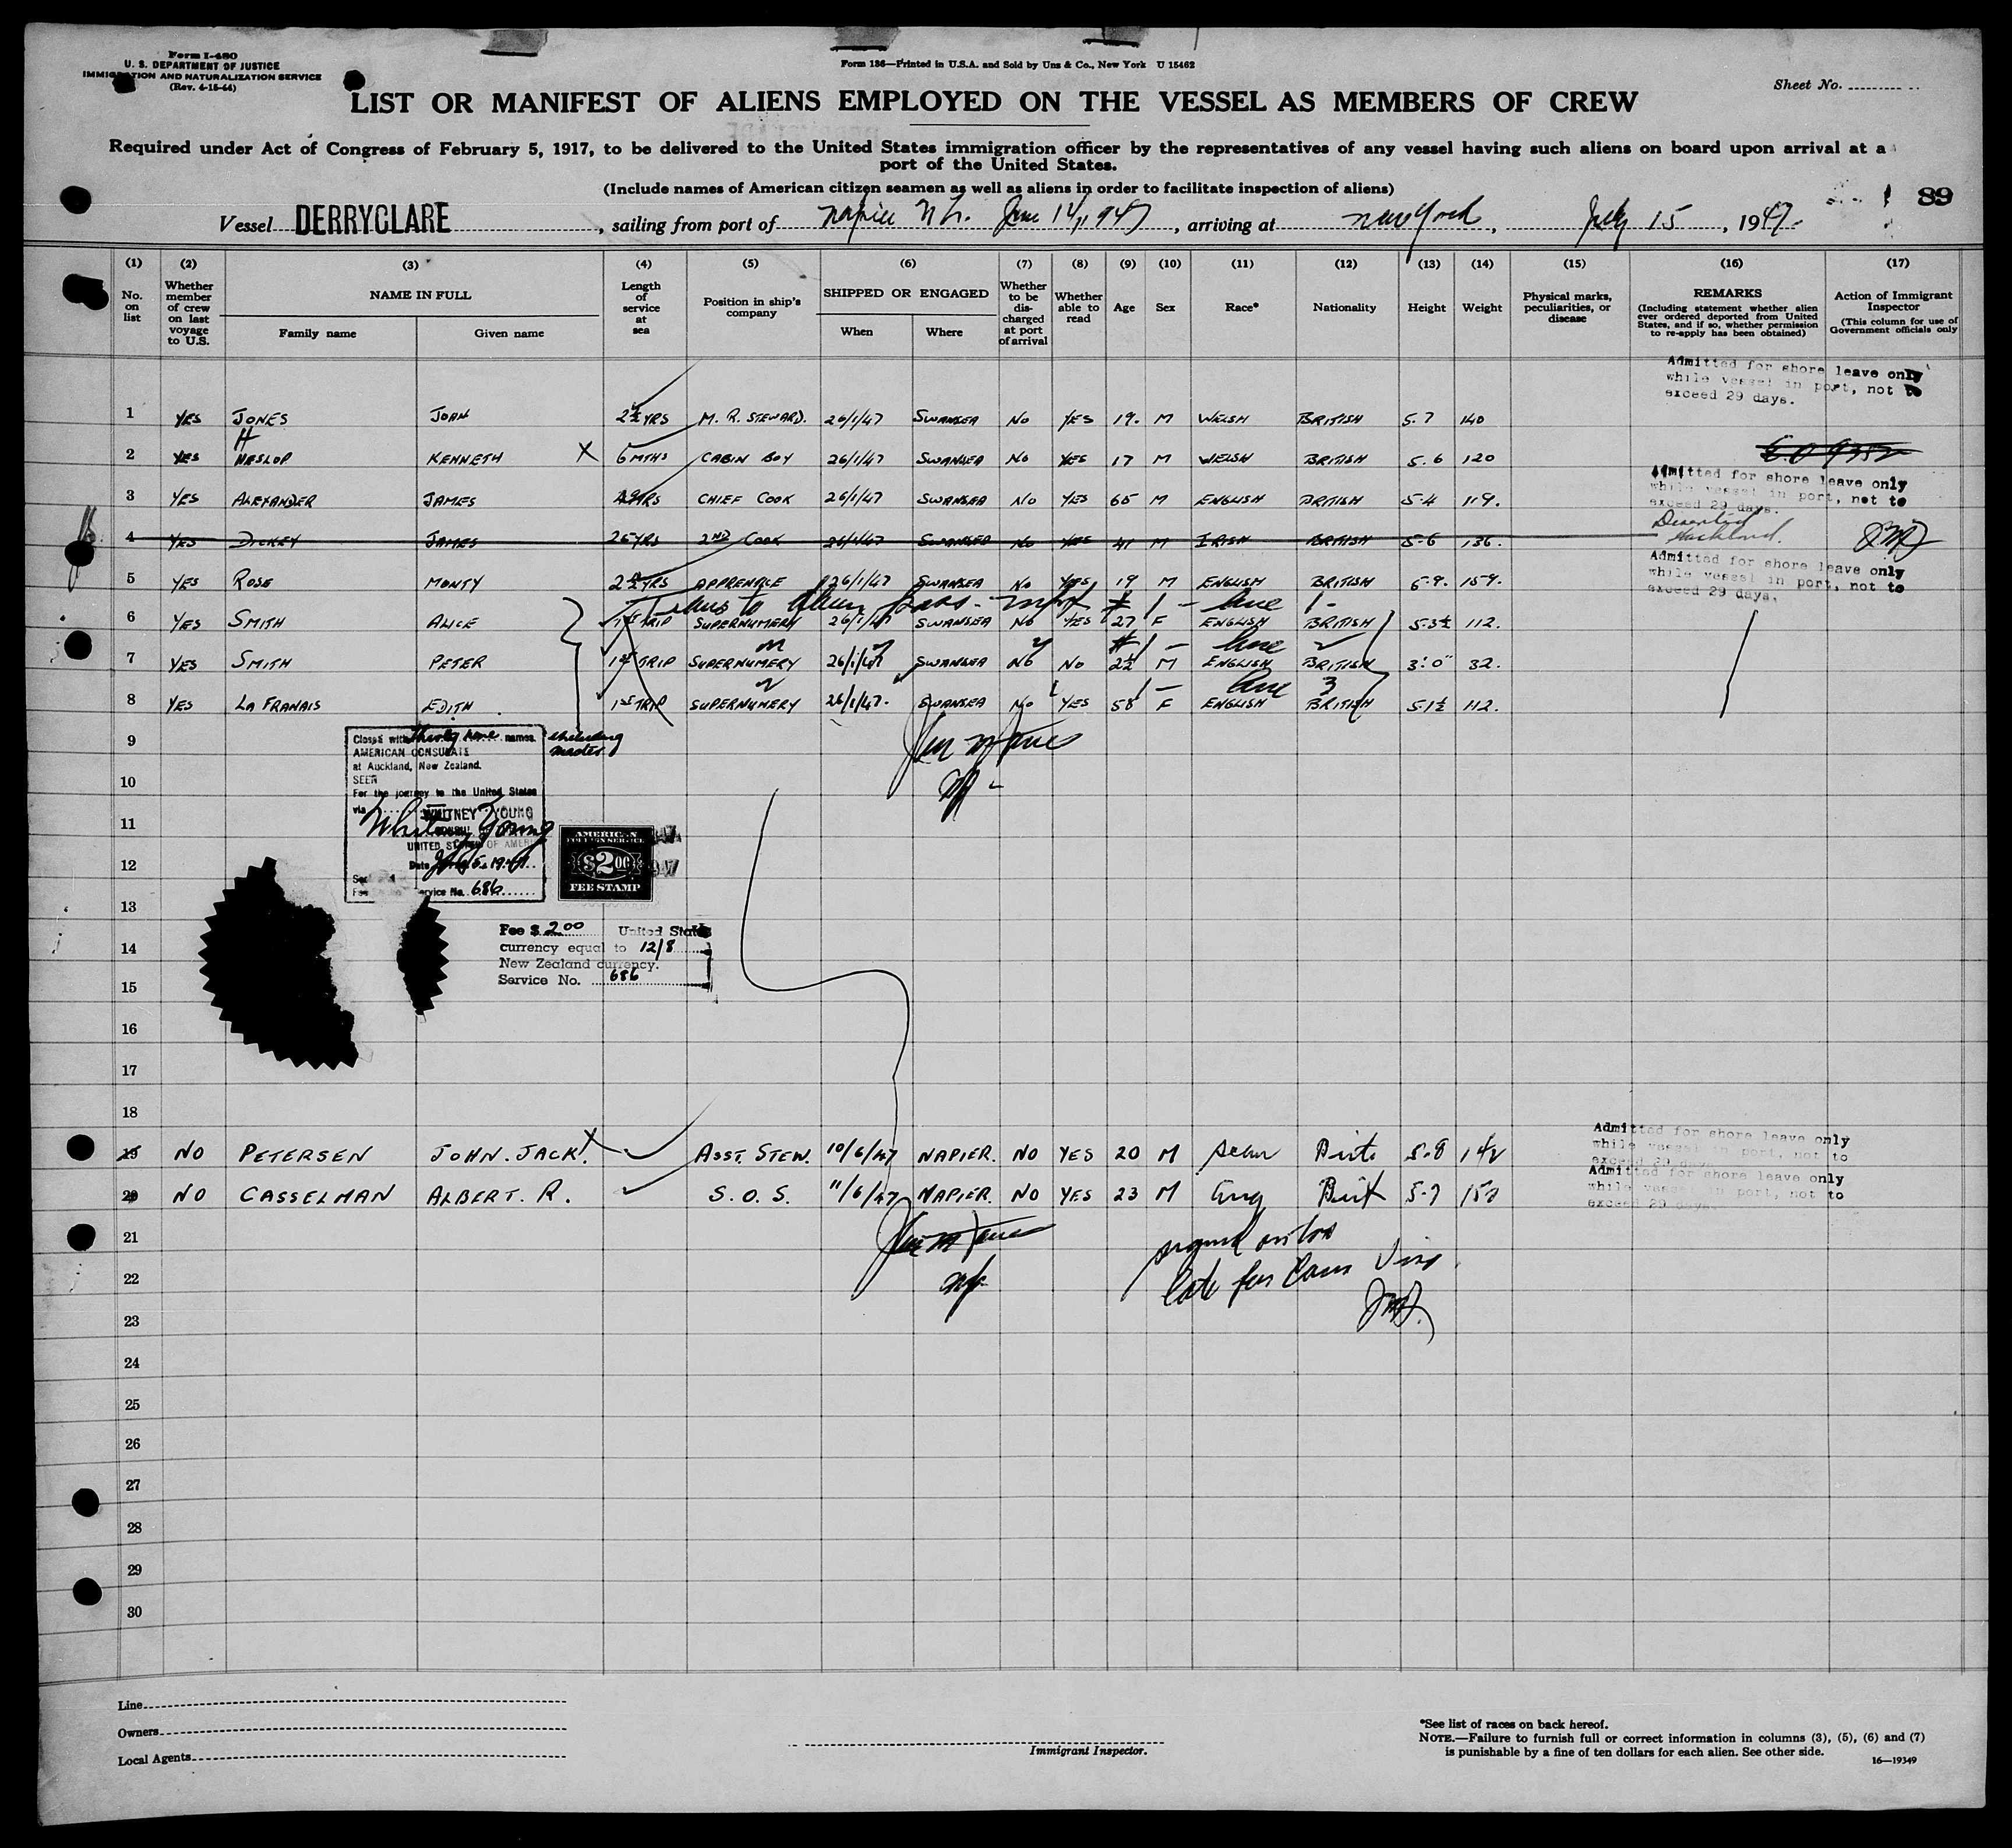 Form I-480
U. S. DEPARTMENT OF JUSTICE
IMMIGRATION AND NATURALIZATION SERVICE
(Rev. 4-15-44)
Form 136—Printed in U.S.A. and Sold by Unz & Co., New York U 15462
Sheet No.
LIST OR MANIFEST OF ALIENS EMPLOYED ON THE VESSEL AS MEMBERS OF CREW
Required under Act of Congress of February 5, 1917, to be delivered to the United States immigration officer by the representatives of any vessel having such aliens on board upon arrival at a
port of the United States.
(Include names of American citizen seamen as well as aliens in order to facilitate inspection of aliens)
89
Vessel DERRYCLARE, sailing from port of Napier N Z. June 14, 1947, arriving at New York, July 15, 1947.
(1) (2) (3) (4) (5) (6) (7) (8) (9) (10) (11) (12) (13) (14) (15) (16) (17)
No. on list
Whether member of crew on last voyage to U.S.
NAME IN FULL
Family name Given name
Length of service at sea
Position in ship's company
SHIPPED OR ENGAGED
When Where
Whether to be discharged at port of arrival
Whether able to read
Age
Sex
Race*
Nationality
Height
Weight
Physical marks, peculiarities, or disease
REMARKS
(Including statement whether alien ever ordered deported from United States, and if so, whether permission to re-apply has been obtained)
Action of Immigrant Inspector
(This column for use of Government officials only
Admitted for shore leave only
while vessel in port, not to
exceed 29 days.
1 YES JONES JOHN 2½ YRS M. R. STEWARD. 26/1/47 SWANSEA NO YES 19. M WELSH BRITISH 5.7 140
H
2 YES HESLOP KENNETH X 6 MTHS CABIN BOY 26/1/47 SWANSEA NO YES 17 M WELSH BRITISH 5.6 120
Admitted for shore leave only
while vessel in port, not to
exceed 29 days.
3 YES ALEXANDER JAMES YRS CHIEF COOK 26/1/47 SWANSEA NO YES 65 M ENGLISH BRITISH 5-4 119.
4 YES DICKEY JAMES 25 YRS 2ND COOK 26/1/47 SWANSEA NO YES 41 M IRISH BRITISH 5-6 136. Deserted Auckland.
Admitted for shore leave only
while vessel in port, not to
exceed 29 days.
5 YES ROSE MONTY 2½ YRS APPRENTICE 26/1/47 SWANSEA NO YES 19 M ENGLISH BRITISH 5-9. 159.
Trans to Alien pass. manf # 1 - line 1-
6 YES SMITH ALICE 1ST TRIP SUPERNUMERY 26/1/47 SWANSEA NO YES 27 F ENGLISH BRITISH 5-3½ 112.
# 1 - line 2
7 YES SMITH PETER 1ST TRIP SUPERNUMERY 26/1/47 SWANSEA NO NO 2½ M ENGLISH BRITISH 3'.0" 32.
1 - line 3
8 YES LA FRANAIS EDITH 1ST TRIP SUPERNUMERY 26/1/47. SWANSEA NO YES 58 F ENGLISH BRITISH 5-1½ 112.
9
Closed with names. including master
AMERICAN CONSULATE
at Auckland, New Zealand.
SEEN
For the journey to the United States
via
10
11
WHITNEY YOUNG
Whitney Young
UNITED STATES OF AMERICA
12
Date
Service No. 686
AMERICAN
FOREIGN SERVICE
$2.00
FEE STAMP
13
Fee $ 2.00 United States
14
currency equal to 12/8
New Zealand currency.
15
Service No. 686
16
17
18
Admitted for shore leave only
while vessel in port, not to
exceed 29 days.
19 NO PETERSEN JOHN. JACK. X ASST. STEW. 10/6/47 NAPIER. NO YES 20 M Scan Brit 5-8 142
Admitted for shore leave only
while vessel in port, not to
exceed 29 days.
20 NO CASSELMAN ALBERT. R. S. O. S. 11/6/47 NAPIER. NO YES 23 M Eng Brit 5-7
21
signed on too
22
late for Cons Visa
23
24
25
26
27
28
29
30
Line
Owners
Local Agents
Immigrant Inspector.
*See list of races on back hereof.
NOTE.—Failure to furnish full or correct information in columns (3), (5), (6) and (7)
is punishable by a fine of ten dollars for each alien. See other side.
16—19349